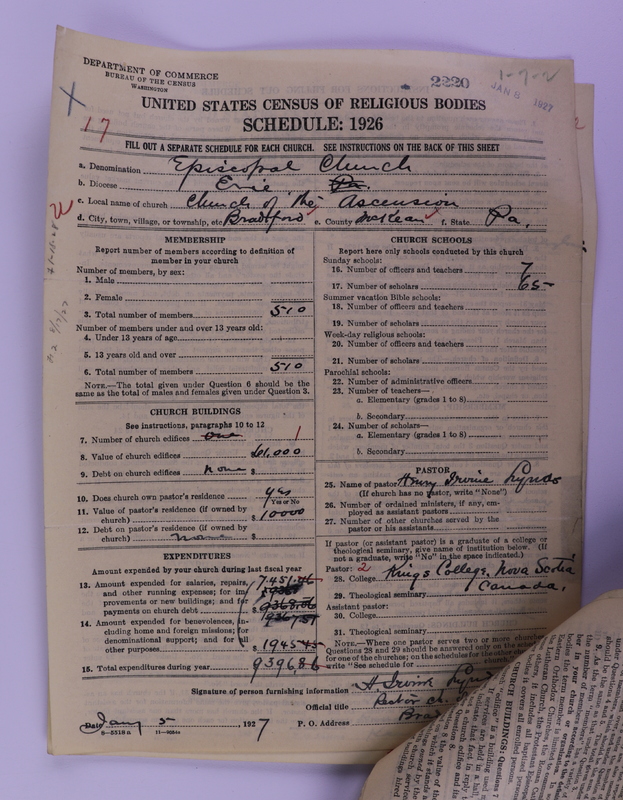 DEPARTMENT OF COMMERCE
BUREAU OF THE CENSUS
WASHINGTON
2220
1-9-2
JAN 8 1927
X
UNITED STATES CENSUS OF RELIGIOUS BODIES
SCHEDULE: 1926
17
FILL OUT A SEPARATE SCHEDULE FOR EACH CHURCH. SEE INSTRUCTIONS ON THE BACK OF THIS SHEET
a. Denomination Episcopal Church
b. Diocese Erie Pa.
c. Local name of church Church of the Ascension
d. City, town, village, or township, etc Bradford e. County McKean f. State Pa.
MEMBERSHIP
Report number of members according to definition of
member in your church
Number of members, by sex:
1. Male
2. Female
3. Total number of members 510
Number of members under and over 13 years old:
4. Under 13 years of age
5. 13 years old and over
6. Total number of members 510
NOTE.—The total given under Question 6 should be the
same as the total of males and females given under Question 3.
CHURCH BUILDINGS
See instructions, paragraphs 10 to 12
7. Number of church edifices one 1
8. Value of church edifices $ 61,000
9. Debt on church edifices none $
10. Does church own pastor's residence yes
Yes or No
11. Value of pastor's residence (if owned by
church) $ 10000
12. Debt on pastor's residence (if owned by
church) none $
EXPENDITURES
Amount expended by your church during last fiscal year
13. Amount expended for salaries, repairs,
and other running expenses; for im-
provements or new buildings; and for
payments on church debt
7.451.46
14. Amount expended for benevolences, in-
cluding home and foreign missions; for
denominational support; and for all
other purposes $ 1945 45
15. Total expenditures during year 9396 86
CHURCH SCHOOLS
Report here only schools conducted by this church
Sunday schools:
16. Number of officers and teachers 7
17. Number of scholars 65-
Summer vacation Bible schools:
18. Number of officers and teachers
19. Number of scholars
Week-day religious schools:
20. Number of officers and teachers
21. Number of scholars
Parochial schools:
22. Number of administrative officers
23. Number of teachers—
a. Elementary (grades 1 to 8)
b. Secondary
24. Number of scholars—
a. Elementary (grades 1 to 8)
b. Secondary
PASTOR
25. Name of pastor Henry Irvine Lynds
(If church has no pastor, write "None")
26. Number of ordained ministers, if any, em-
ployed as assistant pastors
27. Number of other churches served by the
pastor or his assistants
If pastor (or assistant pastor) is a graduate of a college or
theological seminary, give name of institution below. (If
not a graduate, write "No" in the space indicated.)
Pastor: 2
28. College Kings College, Nova Scotia
29. Theological seminary Canada.
Assistant pastor:
30. College
31. Theological seminary
NOTE.—Where one pastor serves two or more churches
Questions 28 and 29 should be answered only on the sche
for one of the churches; on the schedules for the other
write "See schedule for church
Signature of person furnishing information H. Irvine Lyn
Official title Rector Ch.
Date Jany 5, 1927 P. O. Address Brad
8-3518 a